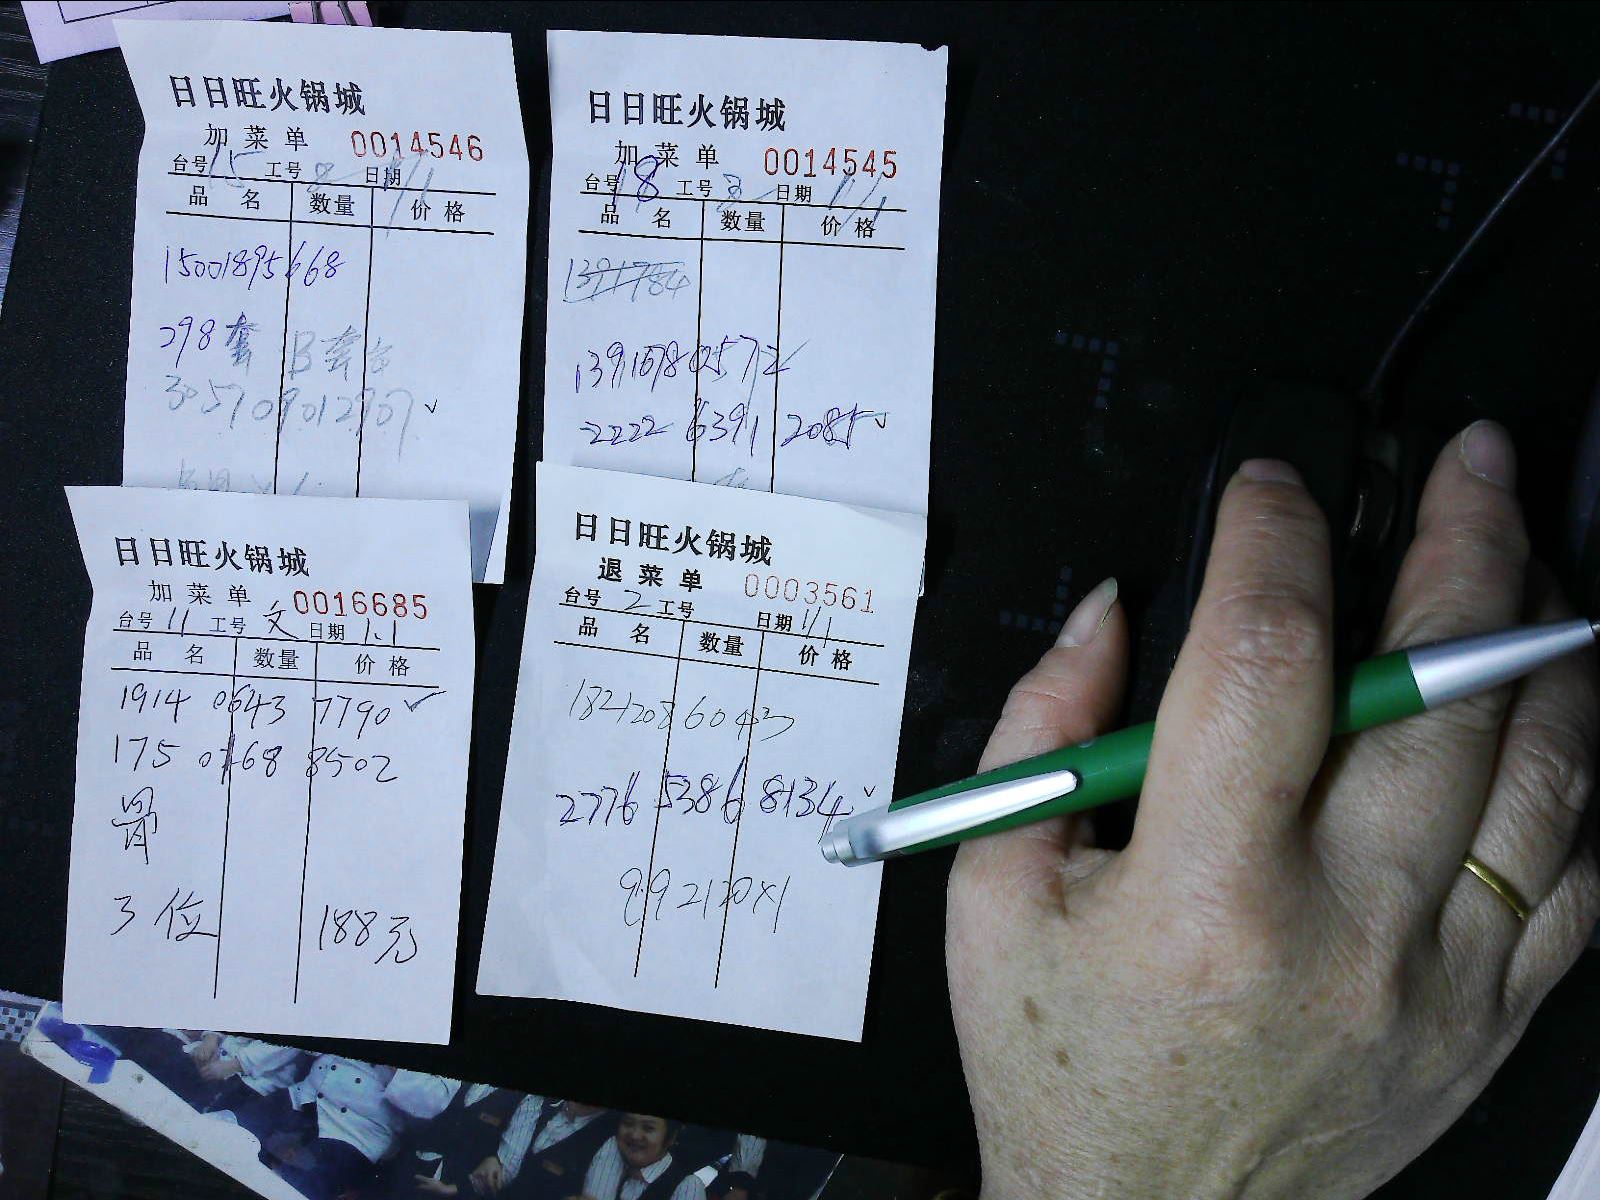 日日旺火锅城
加菜单 0014546
台号 15 工号 日期 1/1
品名 数量 价格
15001895668
298套 B套台
305709012907 ✓
日日旺火锅城
加菜单 0014545
台号 18 工号 日期 1/1
品名 数量 价格
1391784
13916780572
2222 6391 2085 ✓
日日旺火锅城
加菜单 0016685
台号 11 工号 文 日期 1.1
品名 数量 价格
1914 0643 7790 ✓
175 0168 8502
3位 188元
日日旺火锅城
退菜单 0003561
台号 2 工号 日期 1/1
品名 数量 价格
18212086043
2776 5386 8134 ✓
9.9 2120×1